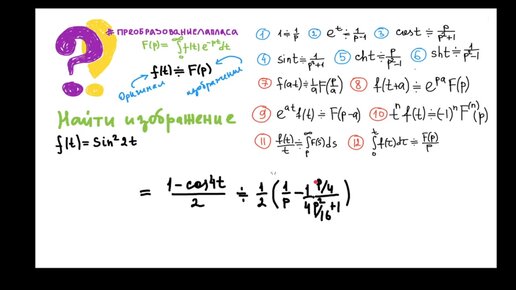 #преобразованиелапласа
F(p)=∫₀^∞ f(t) e^{-pt} dt
f(t) ≑ F(p)
Оригинал изображение
Найти изображение
f(t) = sin² 2t
① 1 ≑ 1/p ② e^t ≑ 1/(p-1) ③ cost ≑ p/(p²+1)
④ sint ≑ 1/(p²+1) ⑤ cht ≑ p/(p²-1) ⑥ sht ≑ 1/(p²-1)
⑦ f(at) ≑ 1/a F(p/a) ⑧ f(t+a) ≑ e^{pa} F(p)
⑨ e^{at} f(t) ≑ F(p-a) ⑩ t^n f(t) ≑ (-1)^n F^{(n)}(p)
⑪ f(t)/t ≑ ∫_p^∞ F(s)ds ⑫ ∫₀^t f(τ)dτ ≑ F(p)/p
= (1-cos4t)/2 ≑ 1/2 (1/p - 1/4 (p/4)/(p²/16+1))